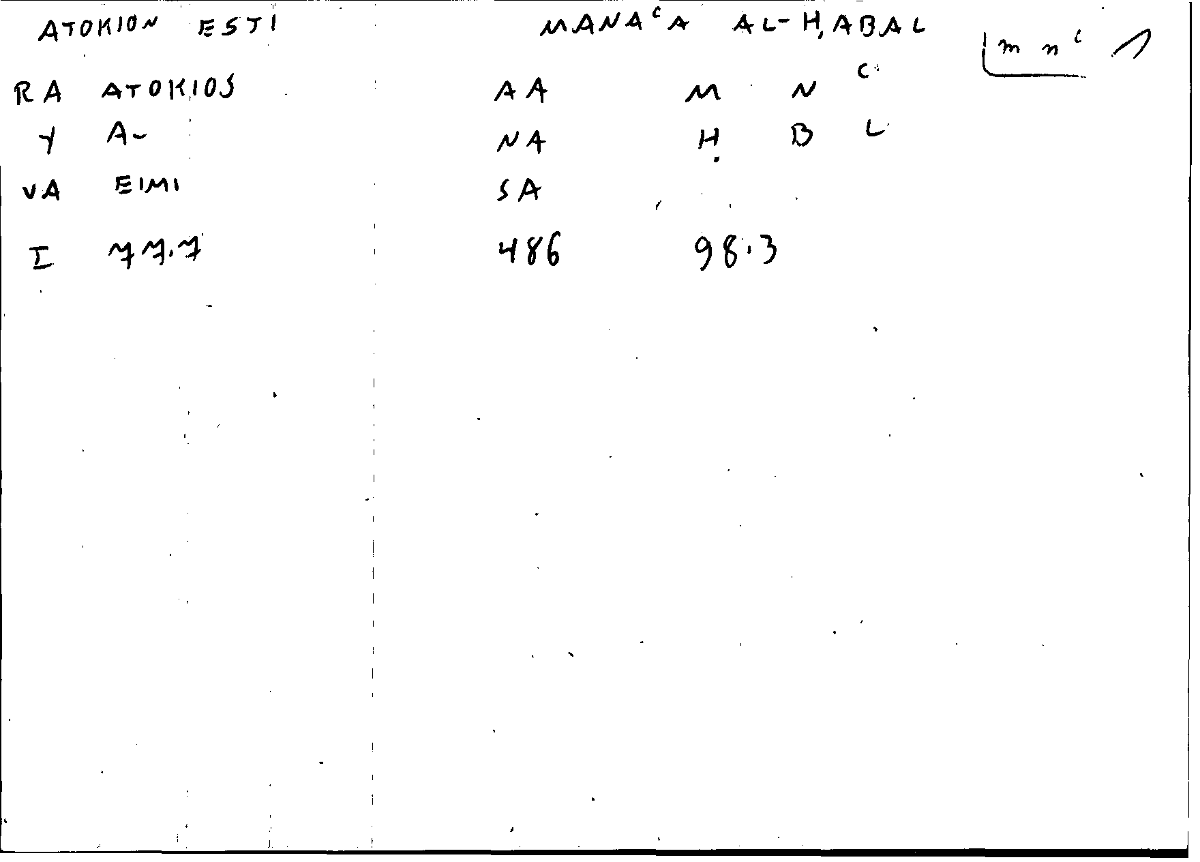 ATOKION ESTI MANAᶜA AL-ḤABAL m nᶜ 1
RA ATOKIOS AA M N C
Y A- NA Ḥ B L
VA EIMI SA
I 77.7 486 98.3